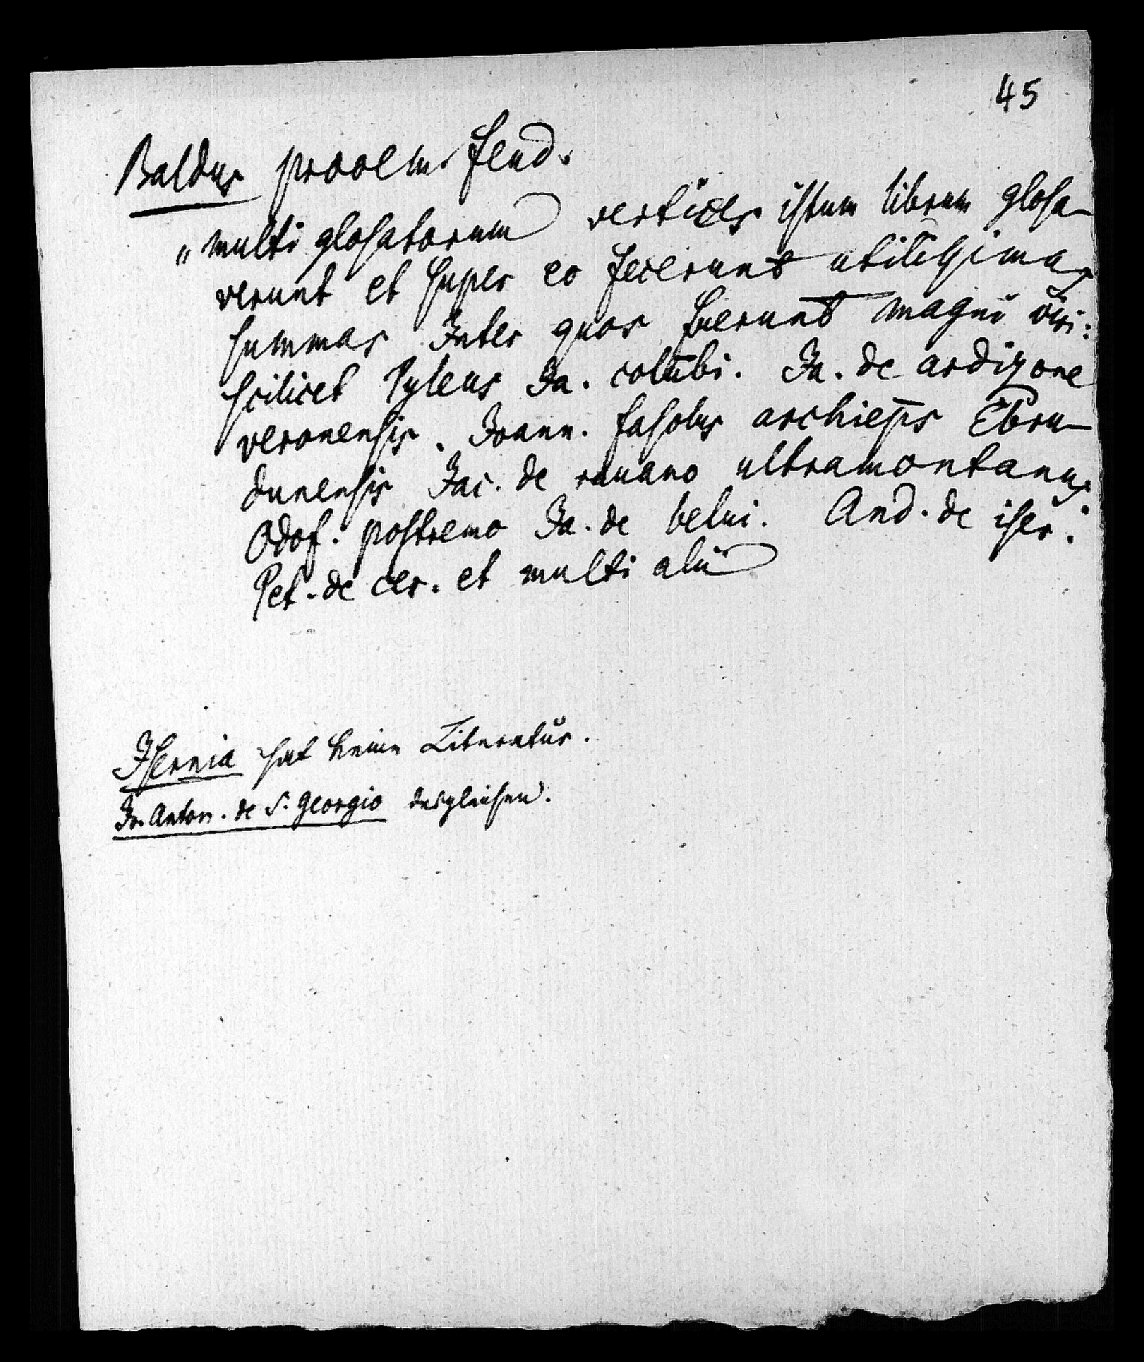 45
Baldus prooem. feud.
„multi glosatorum vertices istum librum glosa-
verunt et super eo fecerunt utilissimas
summas Inter quos fuerunt magni viri:
scilicet Pyleus Ja. colūbi. Ja. de ardizone
veronensis. Joann. fasolus archiep̄s Ebru-
dunensis Jac. de rauano ultramontanus
Odof. postremo Ja. de belui. And. de iser.
Pet. de cer. et multi alii
Isernia hat keine Literatur.
Jo. Anton. de S. Georgio desgleichen.